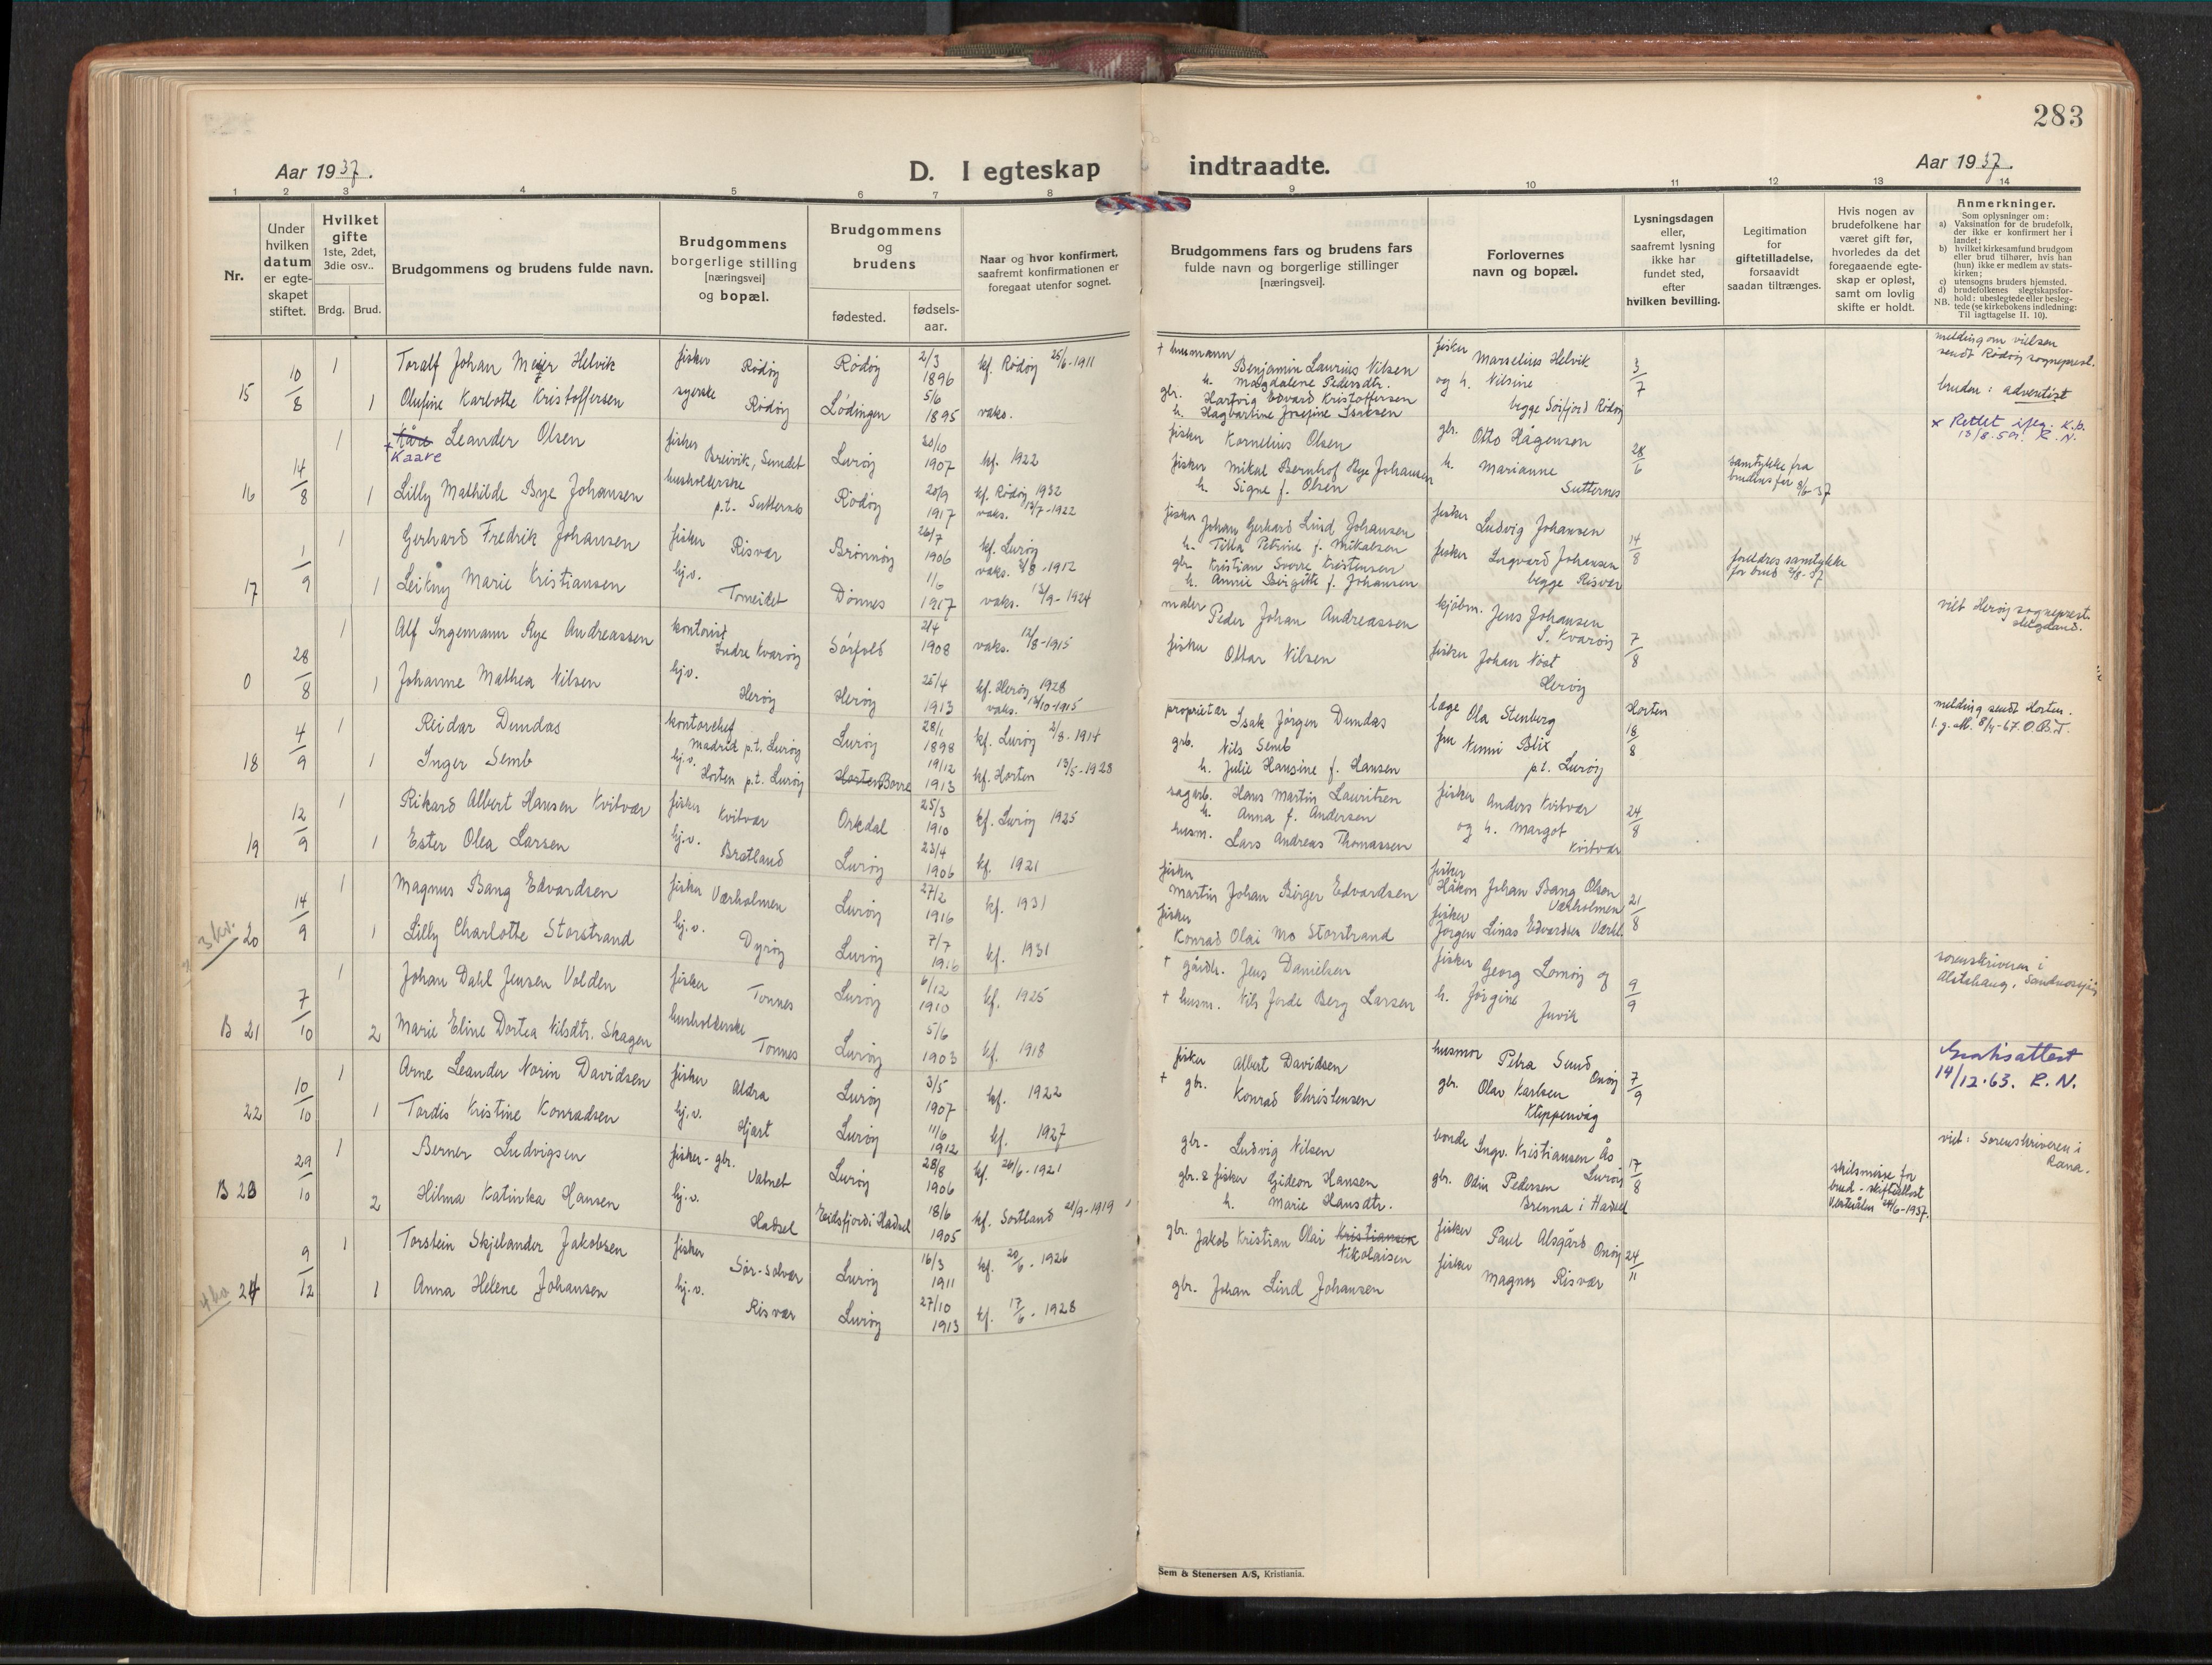 283
Aar 1937.
D. I egteskap indtraadte.
Aar 1937.
1 2 3 4 5 6 7 8 9 10 11 12 13 14
Nr.
Under hvilken datum er egte-skapet stiftet.
Hvilket gifte 1ste, 2det, 3die osv..
Brdg. Brud.
Brudgommens og brudens fulde navn.
Brudgommens borgerlige stilling [næringsvei] og bopæl.
Brudgommens og brudens
fødested.
fødsels-aar.
Naar og hvor konfirmert, saafremt konfirmationen er foregaat utenfor sognet.
Brudgommens fars og brudens fars fulde navn og borgerlige stillinger [næringsvei].
Forlovernes navn og bopæl.
Lysningsdagen eller, saafremt lysning ikke har fundet sted, efter hvilken bevilling.
Legitimation for giftetilladelse, forsaavidt saadan tiltrænges.
Hvis nogen av brudefolkene har været gift før, hvorledes da det foregaaende egte-skap er opløst, samt om lovlig skifte er holdt.
Anmerkninger.
Som oplysninger om:
a) Vaksination for de brudefolk, der ikke er konfirmert her i landet;
b) hvilket kirkesamfund brudgom eller brud tilhører, hvis han (hun) ikke er medlem av stats-kirken;
c) utensogns bruders hjemsted.
d) brudefolkenes slegtskapsfor-hold: ubeslegtede eller besleg-tede (se kirkebokens indledning: Til iagttagelse II. 10).
NB.
15 10/8 1 Toralf Johan Meyer Helvik fisker Rødøy Rødøy 2/3 1896 kf. Rødøy 25/6-1911
1 Olufine Karlotte Kristoffersen syerske Rødøy Lødingen 5/6 1895 vaks.
+ husmann Benjamin Laurius Nilsen
h. Magdalene Pedersdtr.
gbr. Hartvig Edvard Kristoffersen
h. Hagbartine Josefine Isaksen
fisker Marselius Helvik
og h. Nilsine
begge Sørfjord Rødøy
3/7
melding om vielsen
sendt Rødøy sogneprest.
bruden: adventist
16 14/8 1 Kåre Leander Olsen fisker Breivik, Sundet Lurøy 20/10 1907 kf. 1922
+ Kaare
1 Lilly Mathilde Bye Johansen husholderske p.t. Sutternes Rødøy 20/9 1917 kf. Rødøy 1932
vaks. 12/7-1922
fisker Kornelius Olsen
fisker Mikal Bernhof Bye Johansen
h. Signe f. Olsen
gbr. Otto Hågensen
h. Marianne
Sutternes
28/6
samtykke fra
brudens far 9/6-37
x Rettet iflg. K.b.
13/8.59. R.N.
17 1/9 1 Gerhard Fredrik Johansen fisker Risvær Brønnøy 26/7 1906 kf. Lurøy
vaks. 3/8-1912
1 Leikny Marie Kristiansen hj.v. Tomeidet Dønnes 1/6 1917 vaks. 13/9-1924
fisker Johan Gerhard Lind Johansen
h. Tilla Petrine f. Mikalsen
gbr. Kristian Sverre Kristensen
h. Annie Birgitte f. Johansen
fisker Ludvig Johansen
fisker Ingvard Johansen
begge Risvær
14/8
foreldres samtykke
for brud 2/8-37
0 28/8 1 Alf Ingemann Rye Andreassen kontorist Indre Kvarøy Sørfold 2/4 1908 vaks. 12/8-1915
1 Johanne Mathea Nilsen hj.v. Herøy Herøy 25/4 1913 kf. Herøy 1928
vaks. 13/10-1915
maler Peder Johan Andreassen
fisker Ottar Nilsen
kjøbm. Jens Johansen
I. Kvarøy
fisker Johan Nost
Herøy
7/8
viet Herøy sogneprest.
18 4/9 1 Reidar Dundas kontorchef Madrid p.t. Lurøy Lurøy 28/1 1898 kf. Lurøy 2/8-1914
1 Inger Semb hj.v. Horten p.t. Lurøy Horten Borre 19/12 1913 kf. Horten 13/5-1928
proprietær Isak Jørgen Dundas
Nils Semb
h. Julie Hansine f. Hansen
læge Ola Stenberg
fru Nenni Blix
p.t. Lurøy
Horten
18/8
melding sendt Horten.
1.g. att. 8/4-67. O.B.T.
19 12/9 1 Rikard Albert Hansen Kvitvær fisker Kvitvær Orkdal 25/3 1910 kf. Lurøy 1925
1 Ester Olea Larsen hj.v. Bratland Lurøy 23/4 1906 kf. 1921
sagarb. Hans Martin Lauritsen
h. Anna f. Andersen
husm. Lars Andreas Thomassen
fisker Anders Kvitvær
og h. Margot
Kvitvær
24/8
3 kr. 20 14/9 1 Magnus Bang Edvardsen fisker Værholmen Lurøy 27/2 1916 kf. 1931
1 Lilly Charlotte Storstrand hj.v. Dyrøy Lurøy 7/7 1916 kf. 1931
fisker
Martin Johan Birger Edvardsen
fisker
Konrad Olai Mo Storstrand
fisker
Håkon Johan Bang Olsen
Værholmen
fisker
Jørgen Linas Edvardsen Værhl.
21/8
B 21 7/10 1 Johan Dahl Jensen Volden fisker Tonnes Lurøy 6/12 1910 kf. 1925
2 Marie Eline Dortea Nilsdtr. Skagen husholderske Tonnes Lurøy 5/6 1903 kf. 1918
+ gårdbr. Jens Danielsen
+ husm. Nils Jorde Berg Larsen
fisker Georg Lomøy og
h. Jørgine
Juvik
9/9
sorenskriveren i
Alstahaug, Sandnessjøen
22 10/10 1 Arne Leander Norin Davidsen fisker Aldra Lurøy 3/5 1907 kf. 1922
1 Tordis Kristine Konradsen hj.v. Hjart Lurøy 11/6 1912 kf. 1927
fisker Albert Davidsen
+ gbr. Konrad Christensen
husmor Petra Sund
Onøy
gbr. Olav Karlsen
Kleppenvåg
7/9
Gratisattest
14/12.63. R.N.
B 23 29/10 1 Berner Ludvigsen fisker-gbr. Valnet Lurøy 28/8 1906 kf. 26/6-1921
2 Hilma Katinka Hansen hj.v. Hadsel Eidsfjord i Hadsel 18/6 1905 kf. Sortland 21/9-1919
gbr. Ludvig Nilsen
gbr. & fisker Gideon Hansen
h. Marie Hansdtr.
bonde Ingv. Kristiansen Ås
Lurøy
gbr. Odin Pedersen
Brenna i Hadsel
17/8
skilsmisse for
brud - skifteattest
Vesterålen 24/6-1937.
viet: Sorenskriveren i
Rana.
4 kr 24 9/12 1 Torstein Skjelander Jakobsen fisker Sør-Solvær Lurøy 16/3 1911 kf. 20/6-1926
1 Anna Helene Johansen hj.v. Risvær Lurøy 27/10 1913 kf. 17/6-1928
gbr. Jakob Kristian Olai Kristiansen
Nikolaisen
gbr. Johan Lind Johansen
fisker Paul Alsgård
Onøy
fisker Magnor Risvær
24/11
Sem & Stenersen A/S, Kristiania.